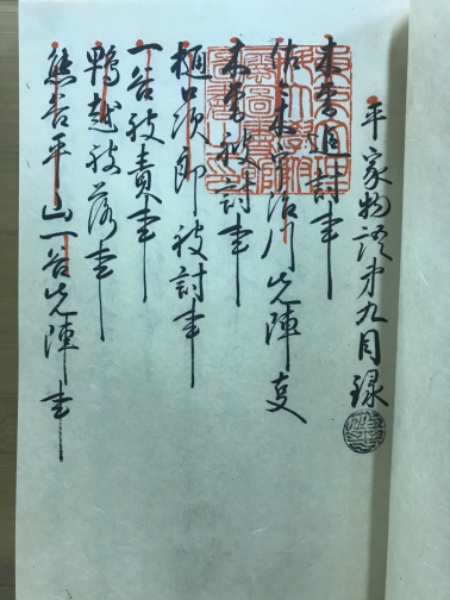 平家物語第九目録
木曽追討事
佐々木宇治川先陣事
木曽被討事
樋口次郎被討事
一谷被責事
鵯越被落事
熊谷平山一谷先陣事